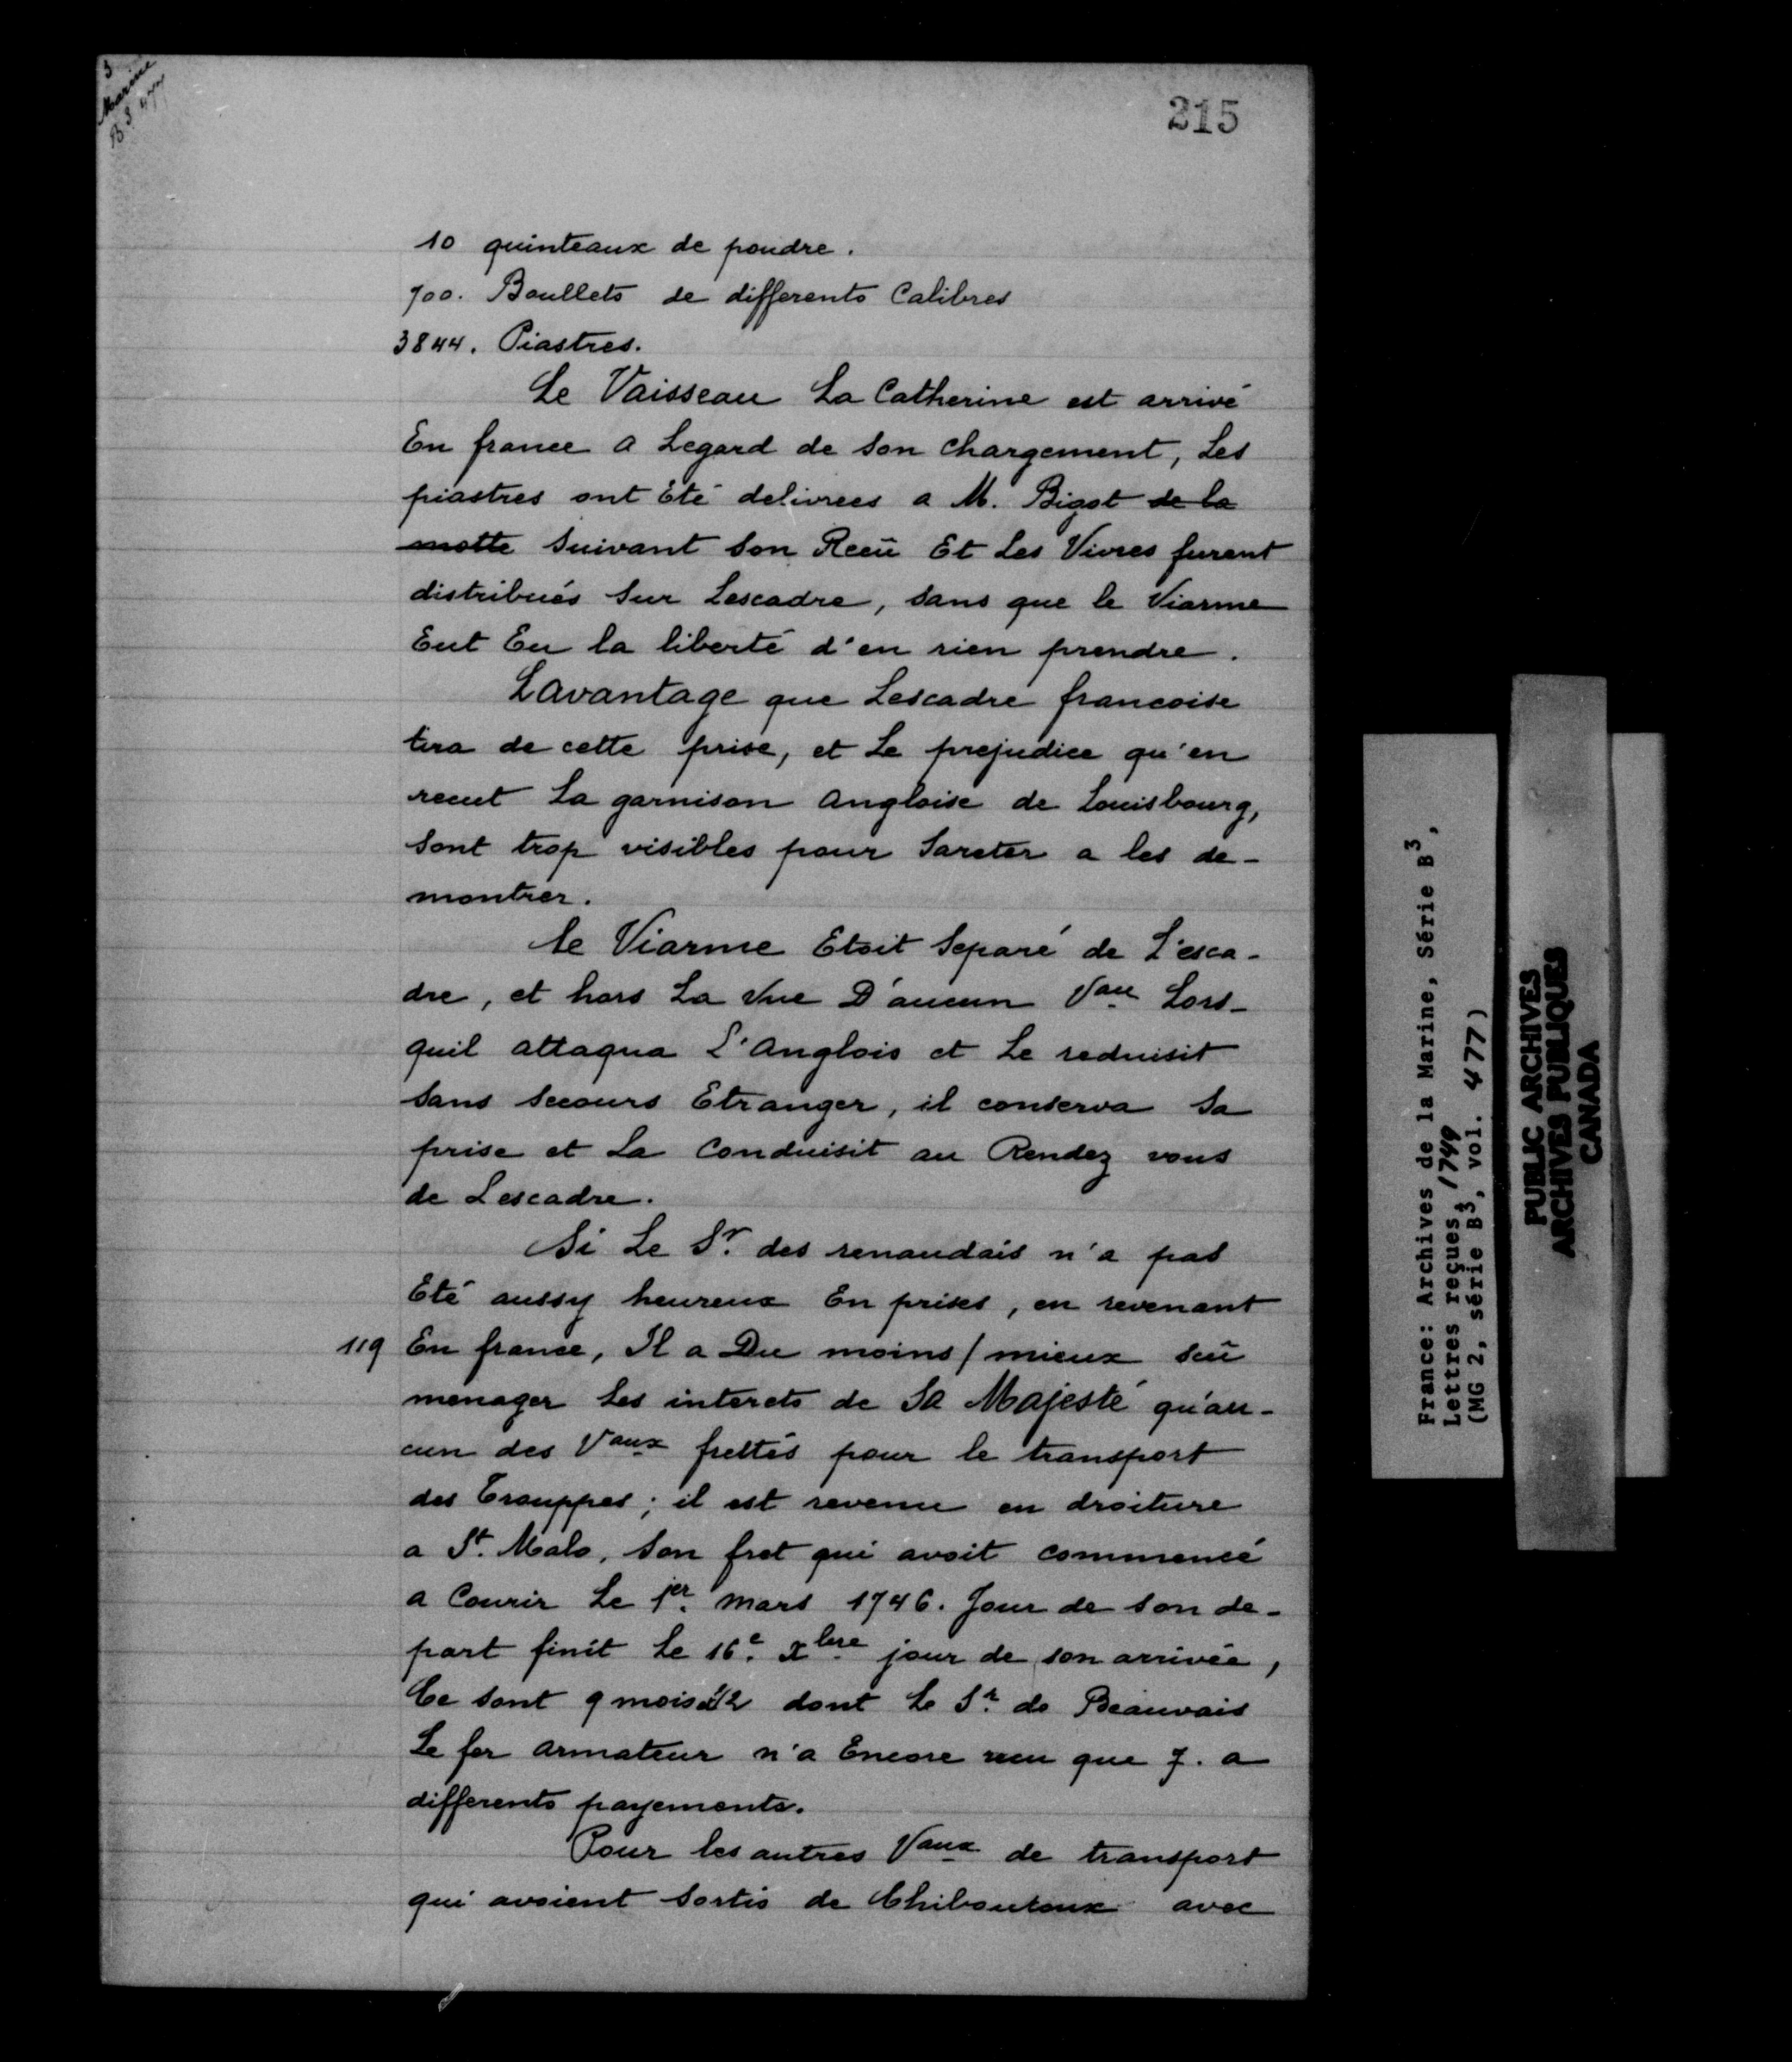 3
Marine
B 3 477
215
10 quinteaux de poudre.
700. Boullets de differents Calibres
3844. Piastres.
Le Vaisseau La Catherine est arrivé
En france a Legard de son chargement, Les
piastres ont Eté delivrees a M. Bigot de la
motte suivant son Recû Et Les Vivres furent
distribués sur Lescadre, sans que le Viarme
Eut Eu la liberté d'en rien prendre.
Lavantage que Lescadre francoise
tira de cette prise, et Le prejudice qu'en
recut La garnison Angloise de Louisbourg,
sont trop visibles pour Sareter a les de-
montrer.
Le Viarme Etoit Separé de L'esca-
dre, et hors La vue D'aucun Vau Lors-
quil attaqua L'Anglois et Le reduisit
sans secours Etranger, il conserva Sa
prise et La Conduisit au Rendez vous
de Lescadre.
Si Le Sr. des renaudais n'a pas
Eté aussy heureux En prises, en revenant
119 En france, Il a Du moins / mieux seû
menager Les interets de Sa Majesté qu'au-
cun des Vaux frettés pour le transport
des Trouppes; il est revenu en droiture
a St. Malo, Son fret qui avoit commencé
a Courir Le 1er. Mars 1746. Jour de son de-
part finit Le 16e. xbre jour de son arrivée,
Ce sont 9 mois 1/2 dont Le Sr. de Beauvais
Le fer armateur n'a Encore recu que 7. a
differents payements.
Pour les autres Vaux de transport
qui avoient Sortis de Chiboutoux avec
France: Archives de la Marine, Série B3,
Lettres reçues, 1749
(MG 2, série B3, vol. 477)
PUBLIC ARCHIVES
ARCHIVES PUBLIQUES
CANADA